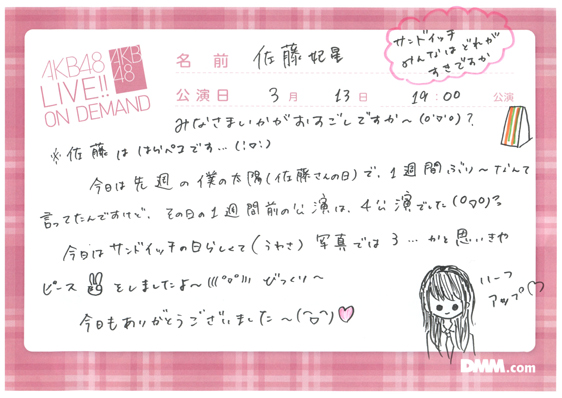 AKB48
LIVE!!
ON DEMAND
AKB
48
名前 佐藤妃星
サンドイッチ
みんなはどれが
すきですか
公演日 3月 13日 19:00 公演
みなさまいかがおすごしですか〜(о'∀'о)?
※佐藤ははらぺコです…(;'∀';)
今日は先週の僕の太陽(佐藤さんの日)で、1週間ぶり〜なんて
言ってたんですけど、その日の1週間前の公演は、4公演でした(о'∀'о)?
今日はサンドイッチの日らしくて(うわさ)写真では3…かと思いきや
ピース をしましたよ〜 びっくり〜
ハーフ
アップ♡
今日もありがとうございました〜(^o^)♡
DMM.com